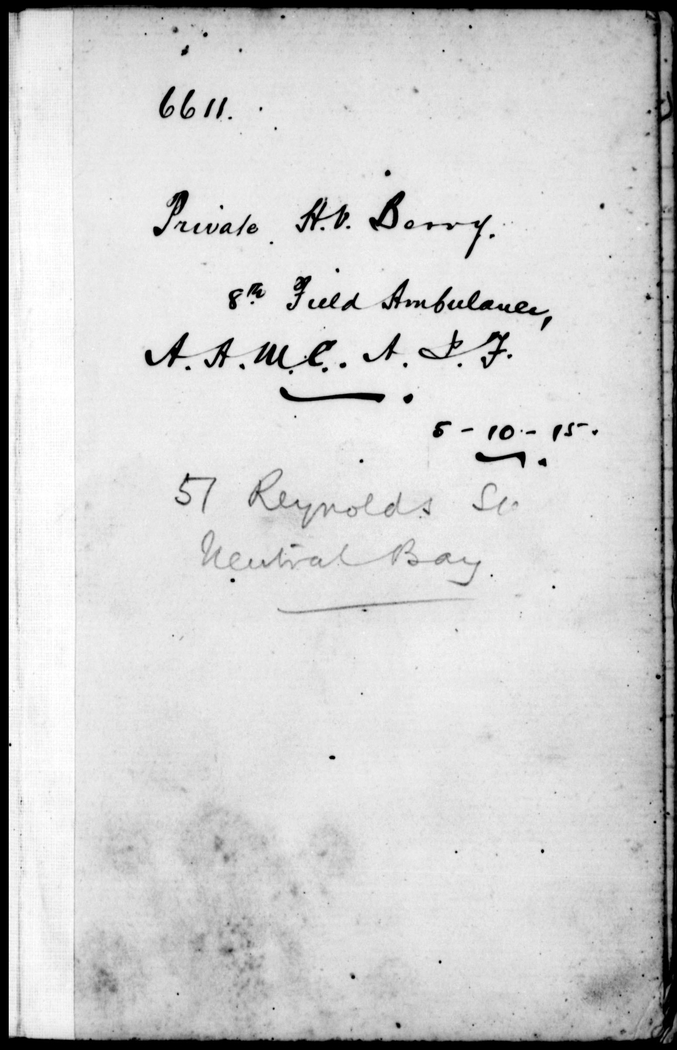 6611.
Private H.V. Berry.
8th Field Ambulance,
A.A.M.C. A.I.F.
5-10-15.
51 Reynolds St
Neutral Bay